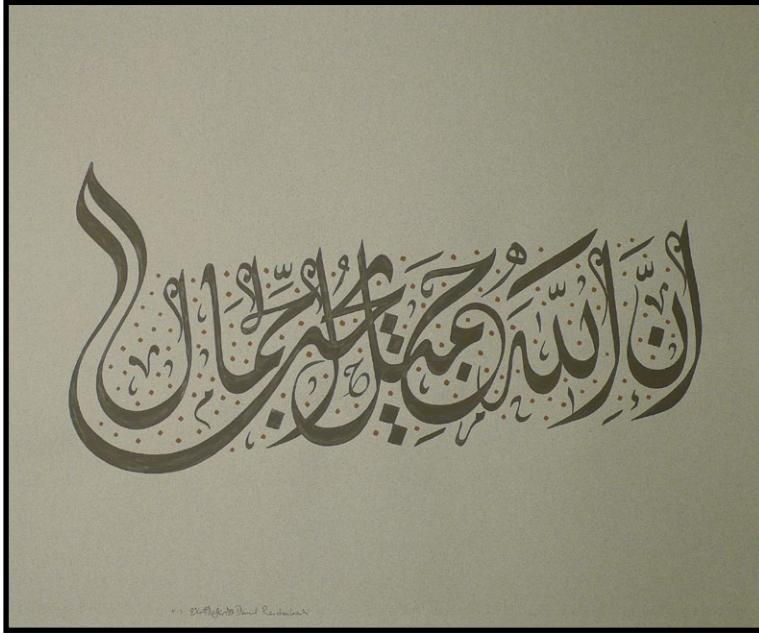 إِنَّ اللّٰهَ جَمِيلٌ يُحِبُّ الْجَمَال